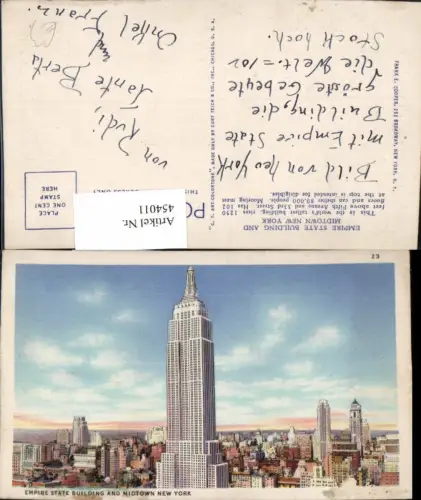 EMPIRE STATE BUILDING AND
MIDTOWN NEW YORK
This is the world's tallest building, rises 1250
feet above Fifth Avenue and 33rd Street. Has 102
floors and can shelter 80,000 people. Mooring mast
at the top is intended for dirigibles.
Bild von New York
mit Empire State
Building, die
grösste Gebeute
die Welt = 102
Stock hoch.
von Rudi,
Tante Berta
und
Onkel Franz.
PO
THIS
ADDRESS ONLY
PLACE
STAMP
HERE
ONE CENT
Artikel Nr.
454011
"C. T. ART-COLORTONE" MADE ONLY BY CURT TEICH & CO., INC., CHICAGO, U. S. A.
FRANK E. COOPER, BROADWAY, NEW YORK, N. Y.
23
EMPIRE STATE BUILDING AND MIDTOWN NEW YORK